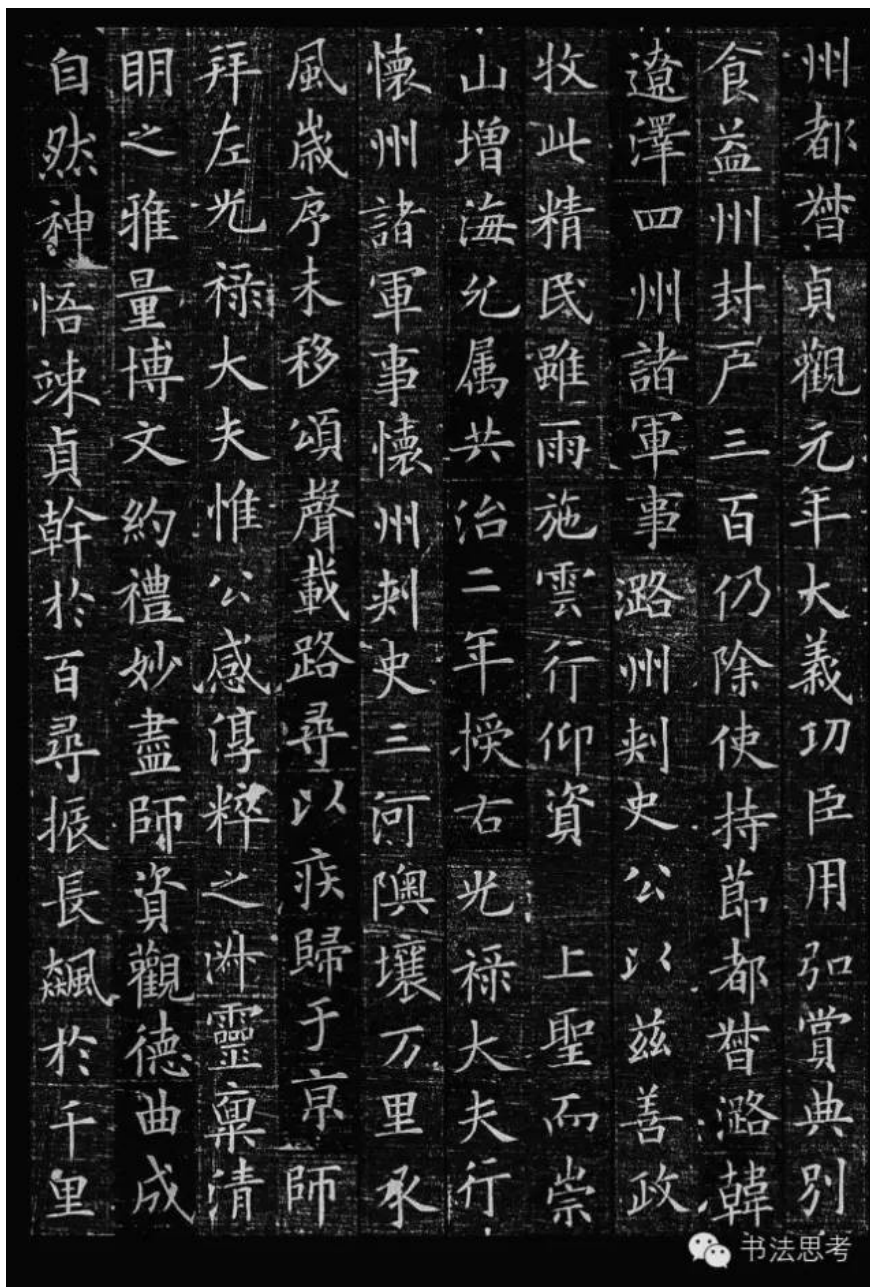 州都督貞觀元年大義功臣用弘賞典別
食益州封戶三百仍除使持節都督潞韓
遼澤四州諸軍事潞州刺史公以茲善政
牧此精民雖雨施雲行仰資上聖而崇
山增海允属共治二年授右光祿大夫行
懷州諸軍事懷州刺史三河隩壤万里承
風歲序未移頌聲載路尋以疾歸于京師
拜左光祿大夫惟公感淳粹之淋靈稟清
明之雅量博文約禮妙盡師資觀德曲成
自然神悟竦貞幹於百尋振長飆於千里
书法思考